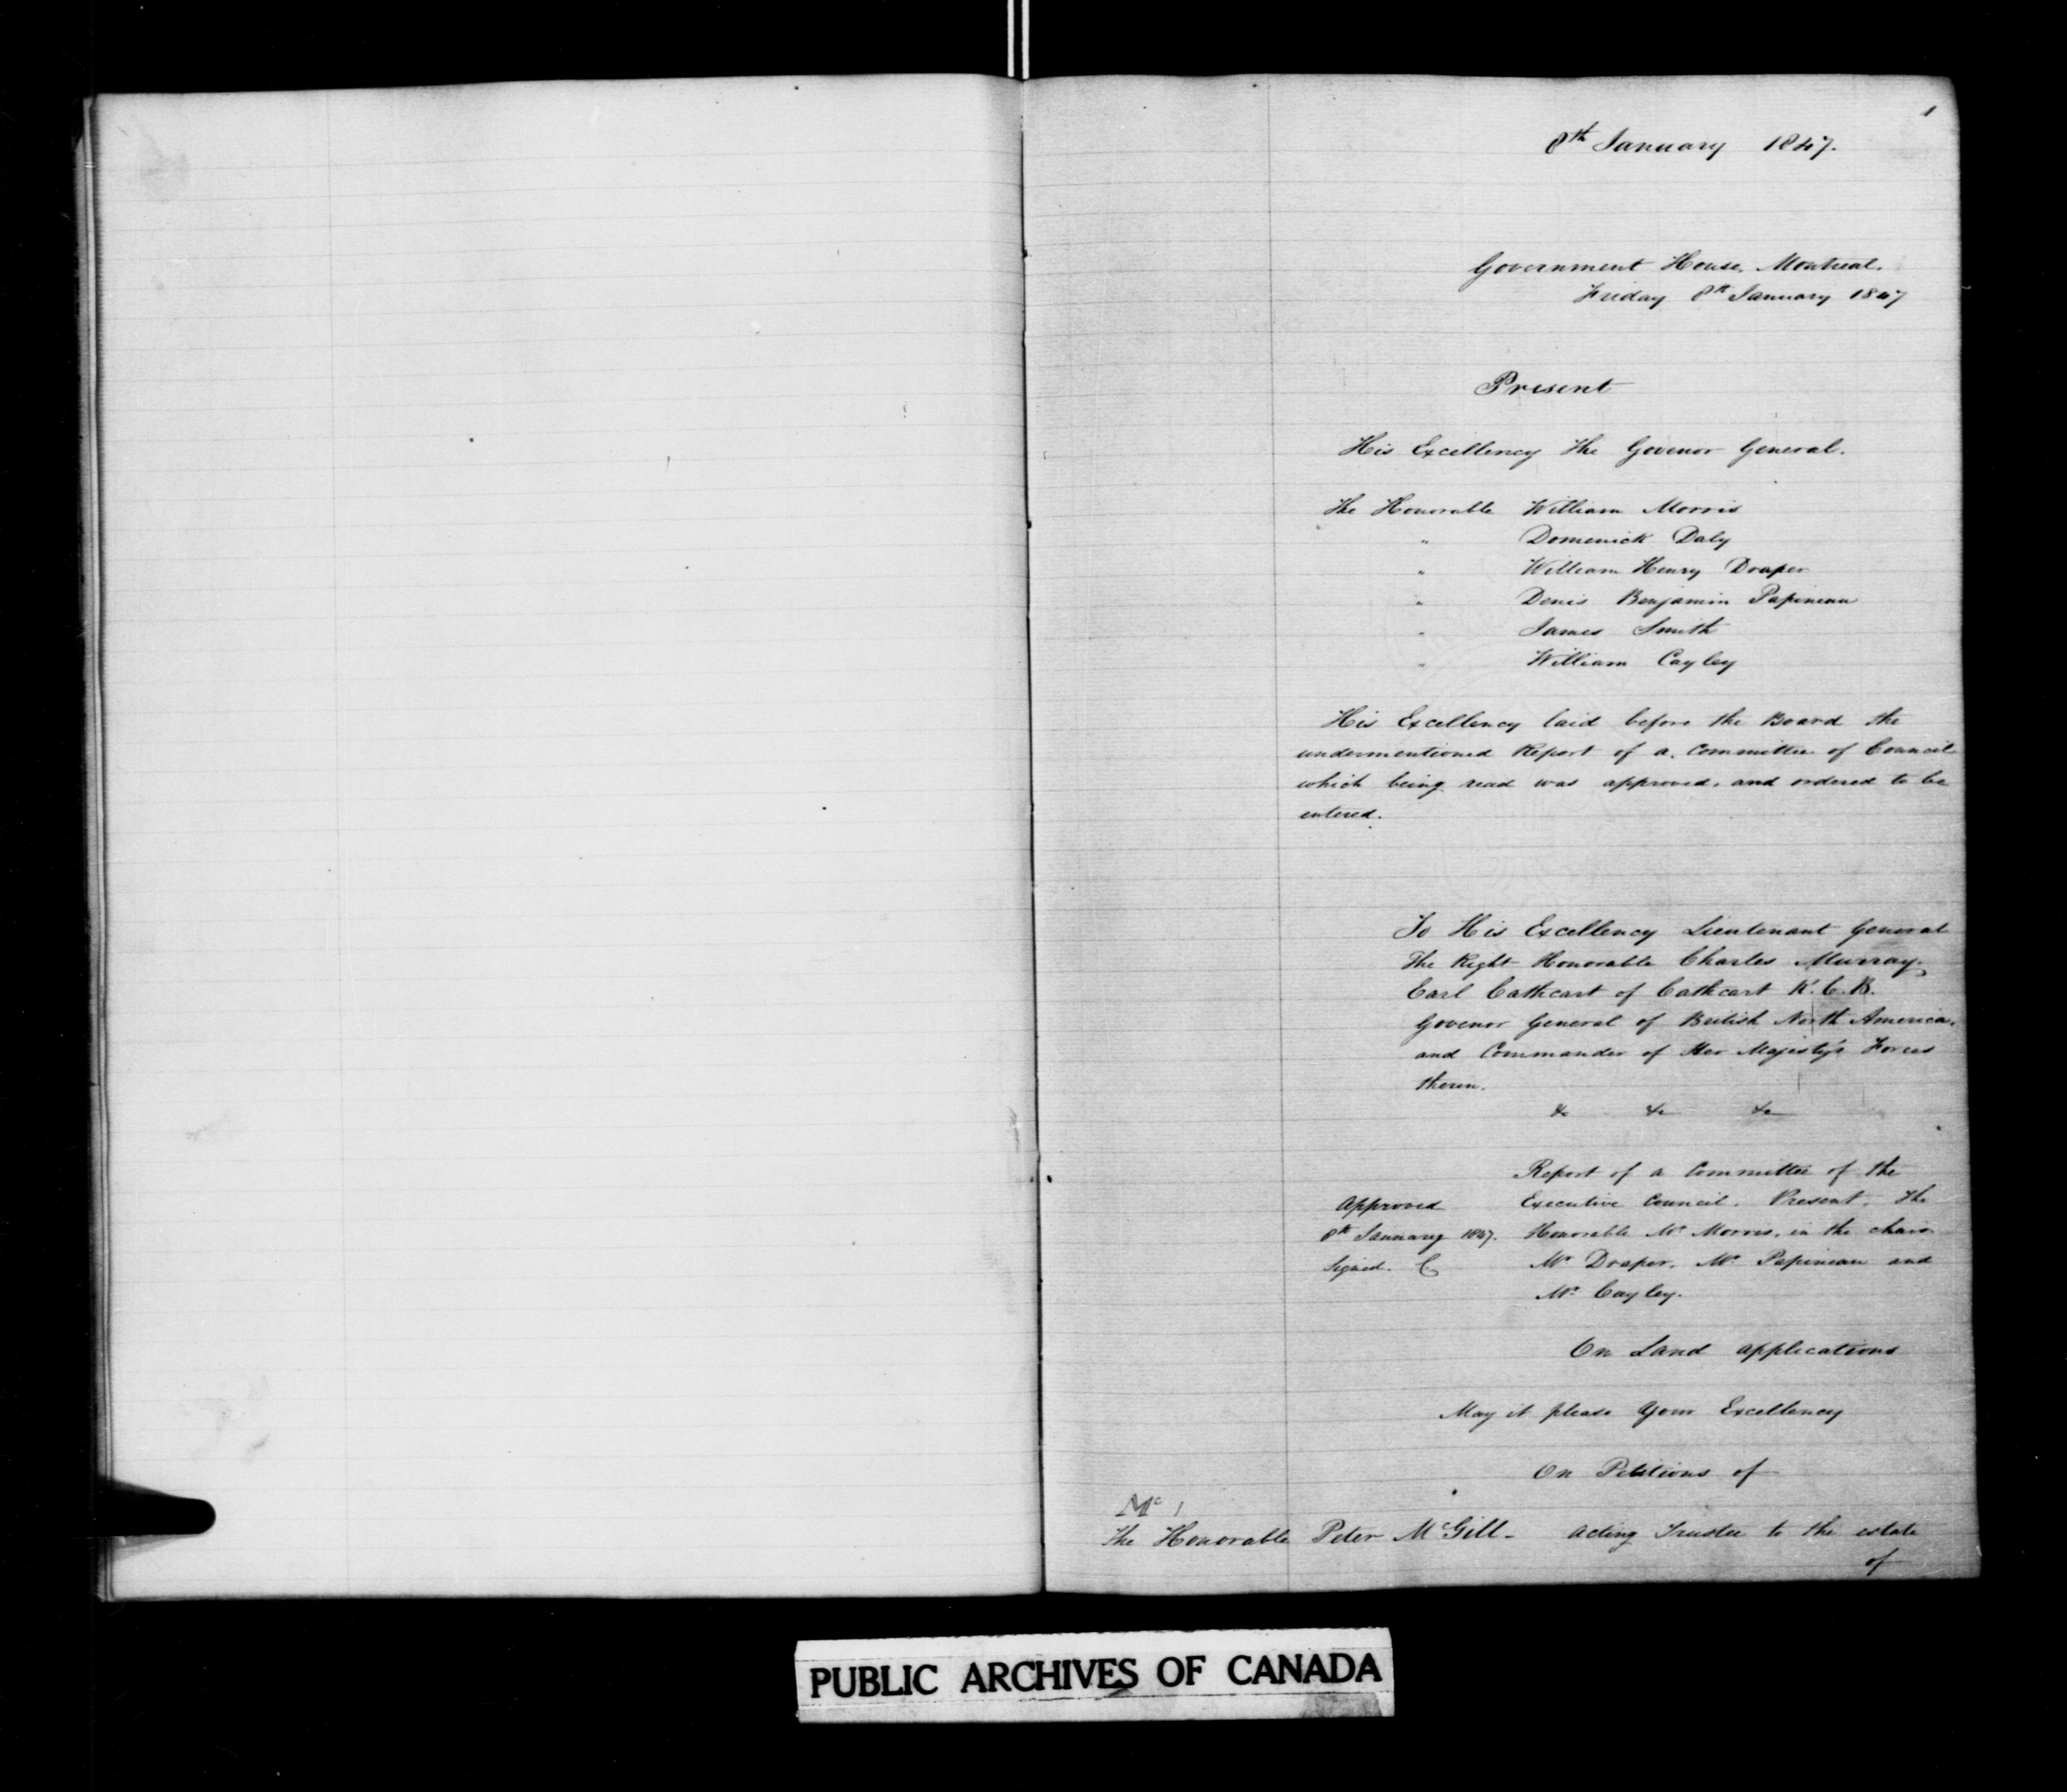 1
8th January 1847.
Government House, Montreal.
Friday 8th January 1847
Present
His Excellency the Govenor General.
The Honorable William Morris
" Domenick Daly
" William Henry Draper
" Denis Benjamin Papineau
" James Smith
" William Cayley
His Excellency laid before the Board the
undermentioned Report of a Committee of Council
which being read was approved, and ordered to be
entered.
To His Excellency Lieutenant General
The Right Honorable Charles Murray,
Earl Cathcart of Cathcart K.C.B.
Govenor General of British North America,
and Commander of Her Majesty's Forces
therein.
&c &c &c
Report of a Committee of the
Approved Executive Council. Present, The
8th January 1847. Honorable Mr Morris, in the chair
Signed. C Mr Draper, Mr Papineau and
Mr Cayley.
On Land applications
May it please Your Excellency
On Petitions of
Mc 1
The Honorable Peter McGill - Acting Trustee to the estate
of
PUBLIC ARCHIVES OF CANADA